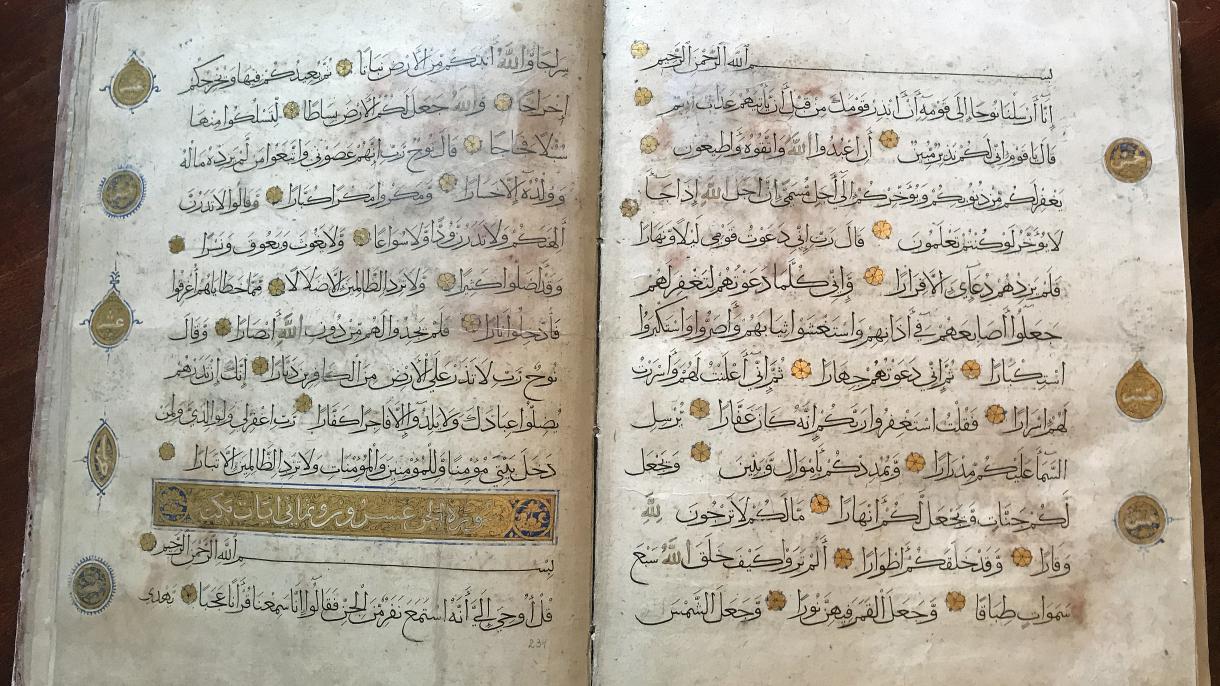 بسم الله الرحمن الرحيم
إنا أرسلنا نوحا إلى قومه أن أنذر قومك من قبل أن يأتيهم عذاب أليم
قال يا قوم إني لكم نذير مبين أن اعبدوا الله واتقوه وأطيعون
يغفر لكم من ذنوبكم ويؤخركم إلى أجل مسمى إن أجل الله إذا جاء
لا يؤخر لو كنتم تعلمون قال رب إني دعوت قومي ليلا ونهارا
فلم يزدهم دعائي إلا فرارا وإني كلما دعوتهم لتغفر لهم
جعلوا أصابعهم في آذانهم واستغشوا ثيابهم وأصروا واستكبروا
استكبارا ثم إني دعوتهم جهارا ثم إني أعلنت لهم وأسررت
لهم إسرارا فقلت استغفروا ربكم إنه كان غفارا يرسل
السماء عليكم مدرارا ويمددكم بأموال وبنين ويجعل
لكم جنات ويجعل لكم أنهارا ما لكم لا ترجون لله
وقارا وقد خلقكم أطوارا ألم تروا كيف خلق الله سبع
سموات طباقا وجعل القمر فيهن نورا وجعل الشمس
خمس
سراجا والله أنبتكم من الأرض نباتا ثم يعيدكم فيها ويخرجكم
إخراجا والله جعل لكم الأرض بساطا لتسلكوا منها
سبلا فجاجا قال نوح رب إنهم عصوني واتبعوا من لم يزده ماله
وولده إلا خسارا ومكروا مكرا كبارا وقالوا لا تذرن
آلهتكم ولا تذرن ودا ولا سواعا ولا يغوث ويعوق ونسرا
وقد أضلوا كثيرا ولا تزد الظالمين إلا ضلالا مما خطاياهم أغرقوا
فأدخلوا نارا فلم يجدوا لهم من دون الله أنصارا وقال
نوح رب لا تذر على الأرض من الكافرين ديارا إنك إن تذرهم
يضلوا عبادك ولا يلدوا إلا فاجرا كفارا رب اغفر لي ولوالدي ولمن
دخل بيتي مؤمنا وللمؤمنين والمؤمنات ولا تزد الظالمين إلا تبارا
سورة الجن عشرون وثماني آيات مكية
بسم الله الرحمن الرحيم
قل أوحي إلي أنه استمع نفر من الجن فقالوا إنا سمعنا قرآنا عجبا يهدي
خمس
عشر
234